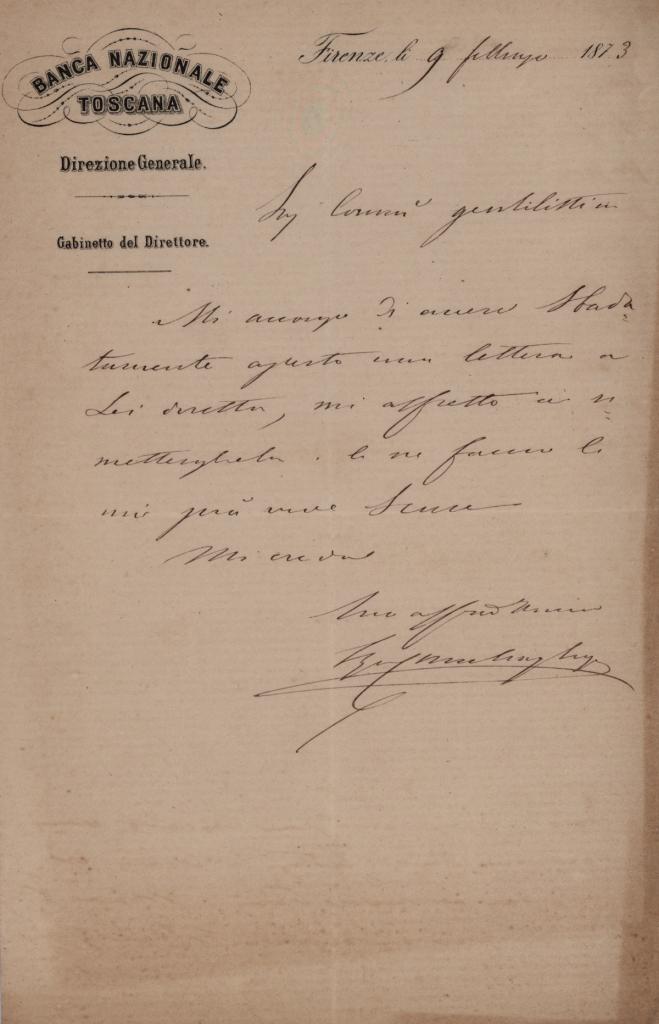 BANCA NAZIONALE
TOSCANA
Direzione Generale.
Gabinetto del Direttore.
Firenze, li 9 febbraio 1873
Sig Comm gentilissimo
Mi accorgo di avere sbada
tamente aperto una lettera a
Lei diretta, mi affretto a ri
mettergliela e ne faccio le
mie più vive scuse
Mi creda
Suo affmo Amico